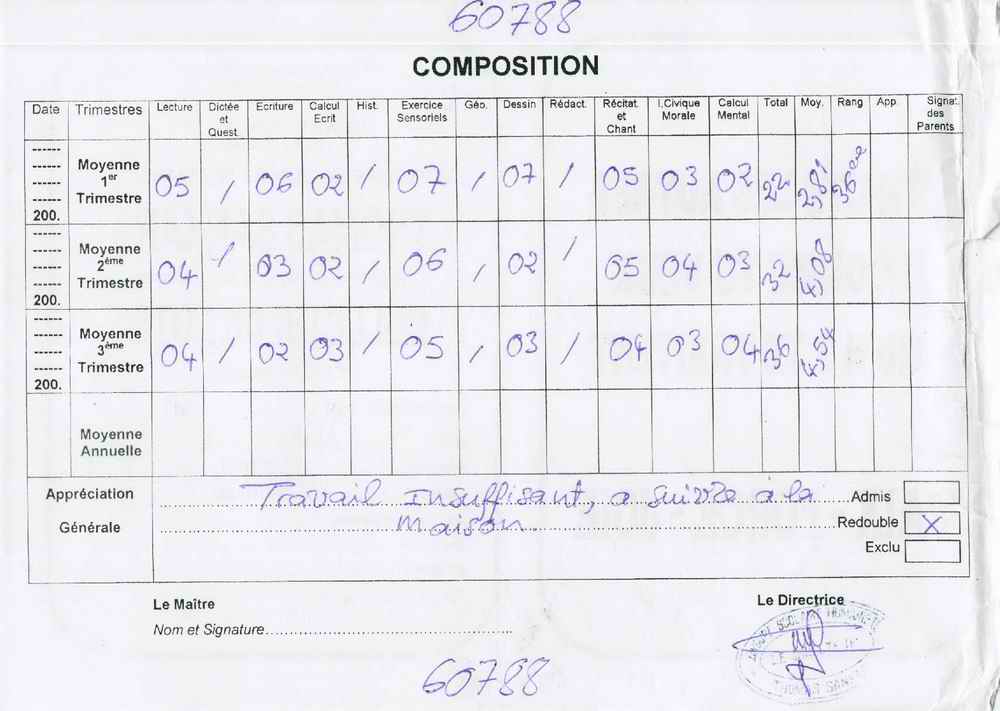 60788
COMPOSITION
Date Trimestres Lecture Dictée et Quest Ecriture Calcul Ecrit Hist. Exercice Sensoriels Géo. Dessin Rédact. Récitat. et Chant I.Civique Morale Calcul Mental Total Moy. Rang App. Signat. des Parents
------ ------ ------ ------ 200. Moyenne 1er Trimestre 05 / 06 02 / 07 / 07 / 05 03 02 22
------ ------ ------ ------ 200. Moyenne 2ème Trimestre 04 / 03 02 / 06 / 02 / 05 04 03 32 4,08
------ ------ ------ ------ 200. Moyenne 3ème Trimestre 04 / 02 03 / 05 / 03 / 04 03 04 36 4,54
Moyenne Annuelle
Appréciation Générale
Travail insuffisant, a suivre à la
maison.
Admis
Redouble X
Exclu
Le Maître
Nom et Signature
Le Directrice
60788